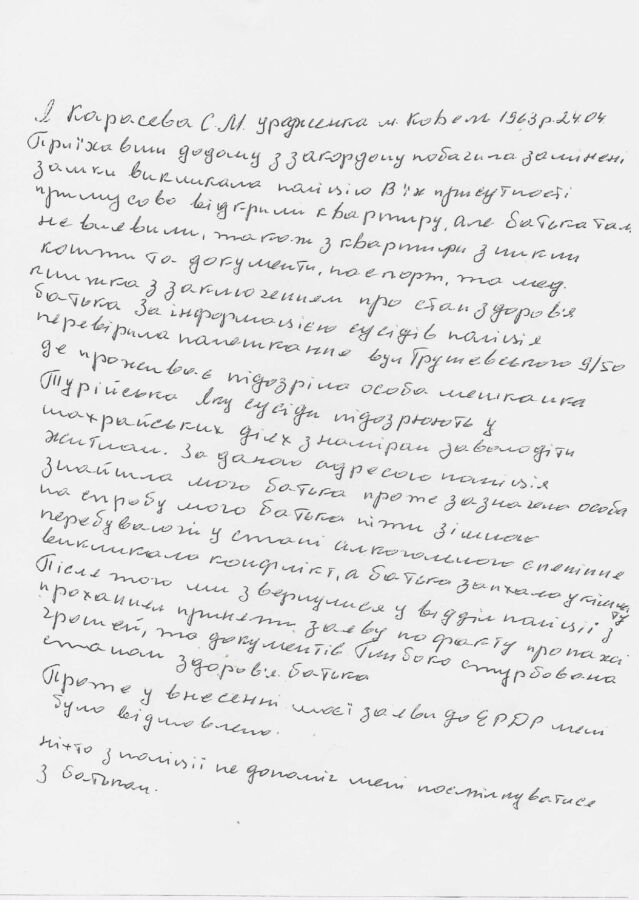 Я Карасева С.М. уродженка м. Ковель 1963р. 24.04.
Приїхавши додому з закордону побачила замінені
замки викликала поліцію В їх присутності
примусово відкрили квартиру, але батька там
не виявили, також з квартири зникли
кошти та документи, паспорт, та мед.
книжка з заключенням про стан здоров'я
батька За інформацією сусідів поліція
перевірила помешкання вул Грушевського 9/50
де проживає підозріла особа мешканка
Турійська Яку сусіди підозрюють у
шахрайських діях з наміром заволодіти
житлом. За даною адресою поліція
знайшла мого батька проте зазначена особа
на спробу мого батька піти зі мною
перебуваючи у стані алкогольного сп'яніння
викликала конфлікт, а батька запхала у кімнату
Після того ми звернулися у відділ поліції з
проханням прийняти заяву по факту пропажі
грошей, та документів Глибоко стурбована
станом здоров'я батька
Проте у внесенні моєї заяви до ЄРДР мені
було відмовлено.
ніхто з поліції не допоміг мені поспілкуватися
з батьком.